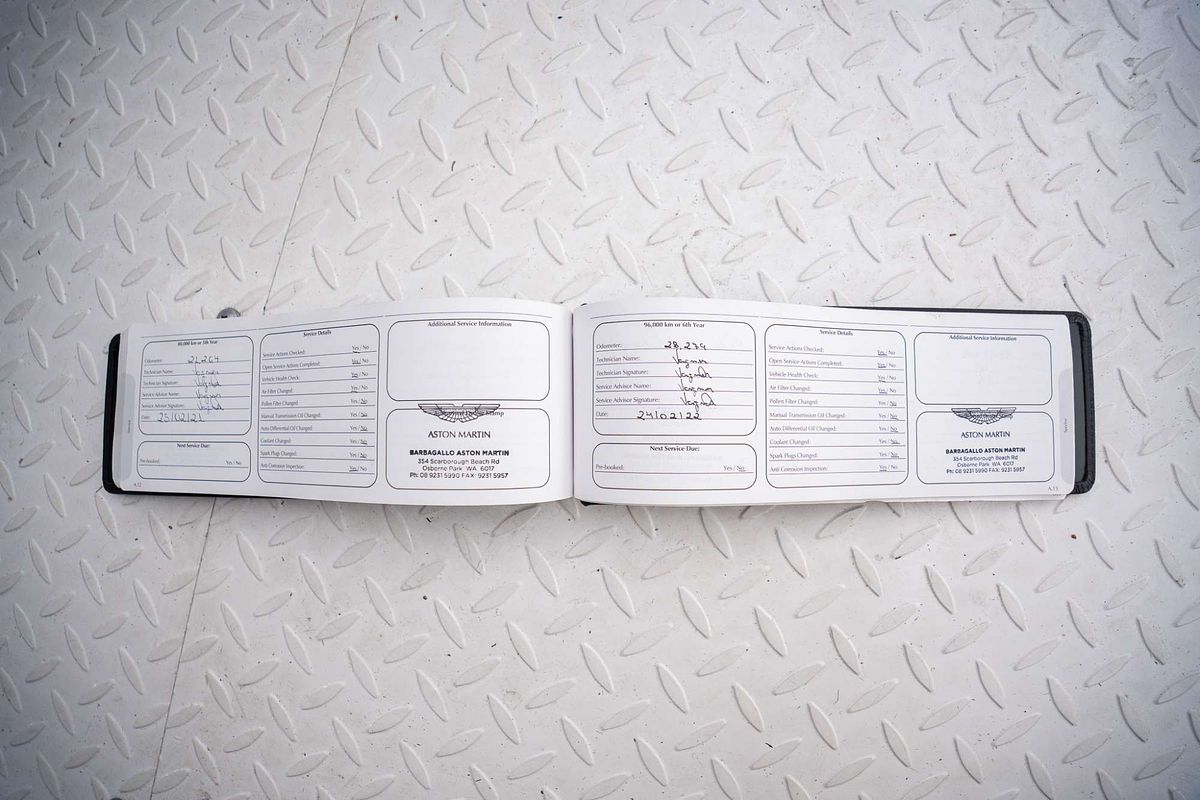 80,000 km or 5th Year
Odometer: 21,264
Technician Name:
Technician Signature:
Service Advisor Name:
Service Advisor Signature:
Date: 25/02/21
Next Service Due:
Pre-booked: Yes / No
Service Details
Service Actions Checked: Yes / No
Open Service Actions Completed: Yes / No
Vehicle Health Check: Yes / No
Air Filter Changed: Yes / No
Pollen Filter Changed: Yes / No
Manual Transmission Oil Changed: Yes / No
Auto Differential Oil Changed: Yes / No
Coolant Changed: Yes / No
Spark Plugs Changed: Yes / No
Anti Corrosion Inspection: Yes / No
Additional Service Information
Stamp
ASTON MARTIN
BARBAGALLO ASTON MARTIN
354 Scarborough Beach Rd
Osborne Park WA 6017
Ph: 08 9231 5990 FAX: 9231 5957
A.12
96,000 km or 6th Year
Odometer: 28,239
Technician Name:
Technician Signature:
Service Advisor Name:
Service Advisor Signature:
Date: 24/02/22
Next Service Due:
Pre-booked: Yes / No
Service Details
Service Actions Checked: Yes / No
Open Service Actions Completed: Yes / No
Vehicle Health Check: Yes / No
Air Filter Changed: Yes / No
Pollen Filter Changed: Yes / No
Manual Transmission Oil Changed: Yes / No
Auto Differential Oil Changed: Yes / No
Coolant Changed: Yes / No
Spark Plugs Changed: Yes / No
Anti Corrosion Inspection: Yes / No
Additional Service Information
Stamp
ASTON MARTIN
BARBAGALLO ASTON MARTIN
354 Scarborough Beach Rd
Osborne Park WA 6017
Ph: 08 9231 5990 FAX: 9231 5957
A.13